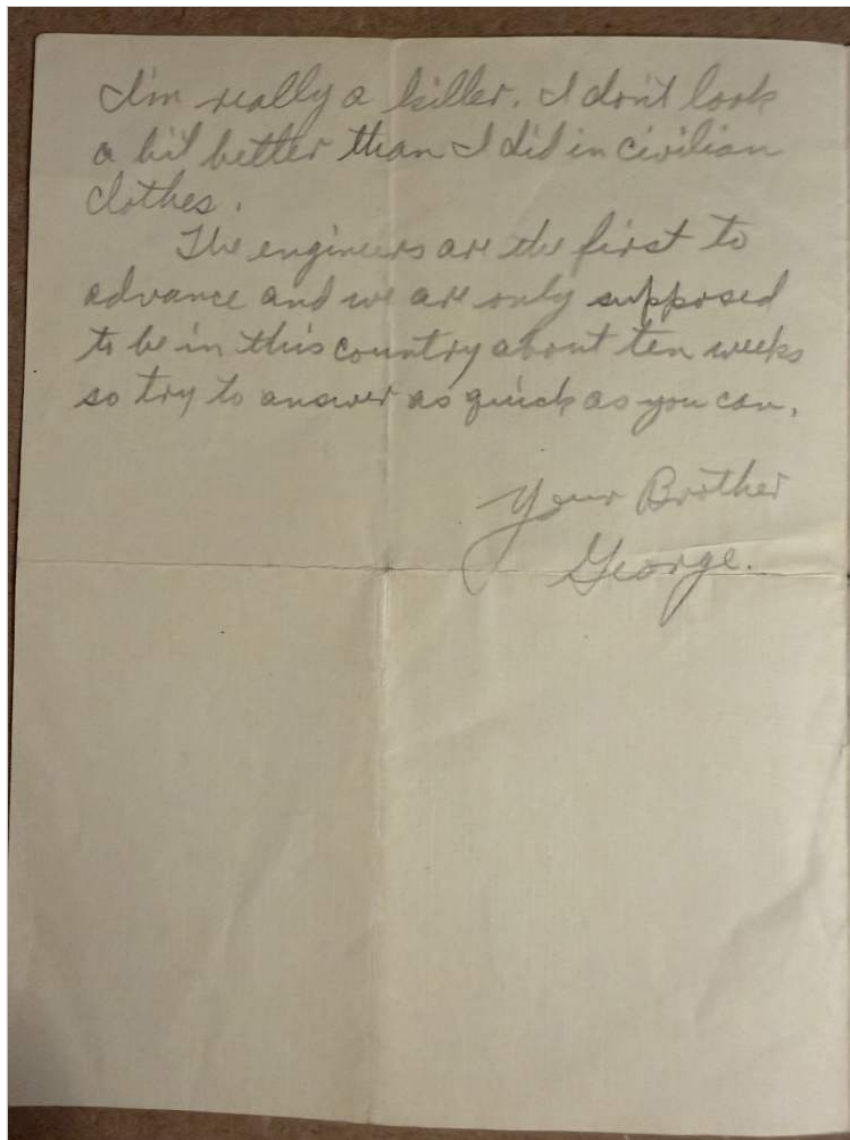 I'm really a killer. I don't look
a bit better than I did in civilian
clothes.
The engineers are the first to
advance and we are only supposed
to be in this country about ten weeks
so try to answer as quick as you can.
Your Brother
George.